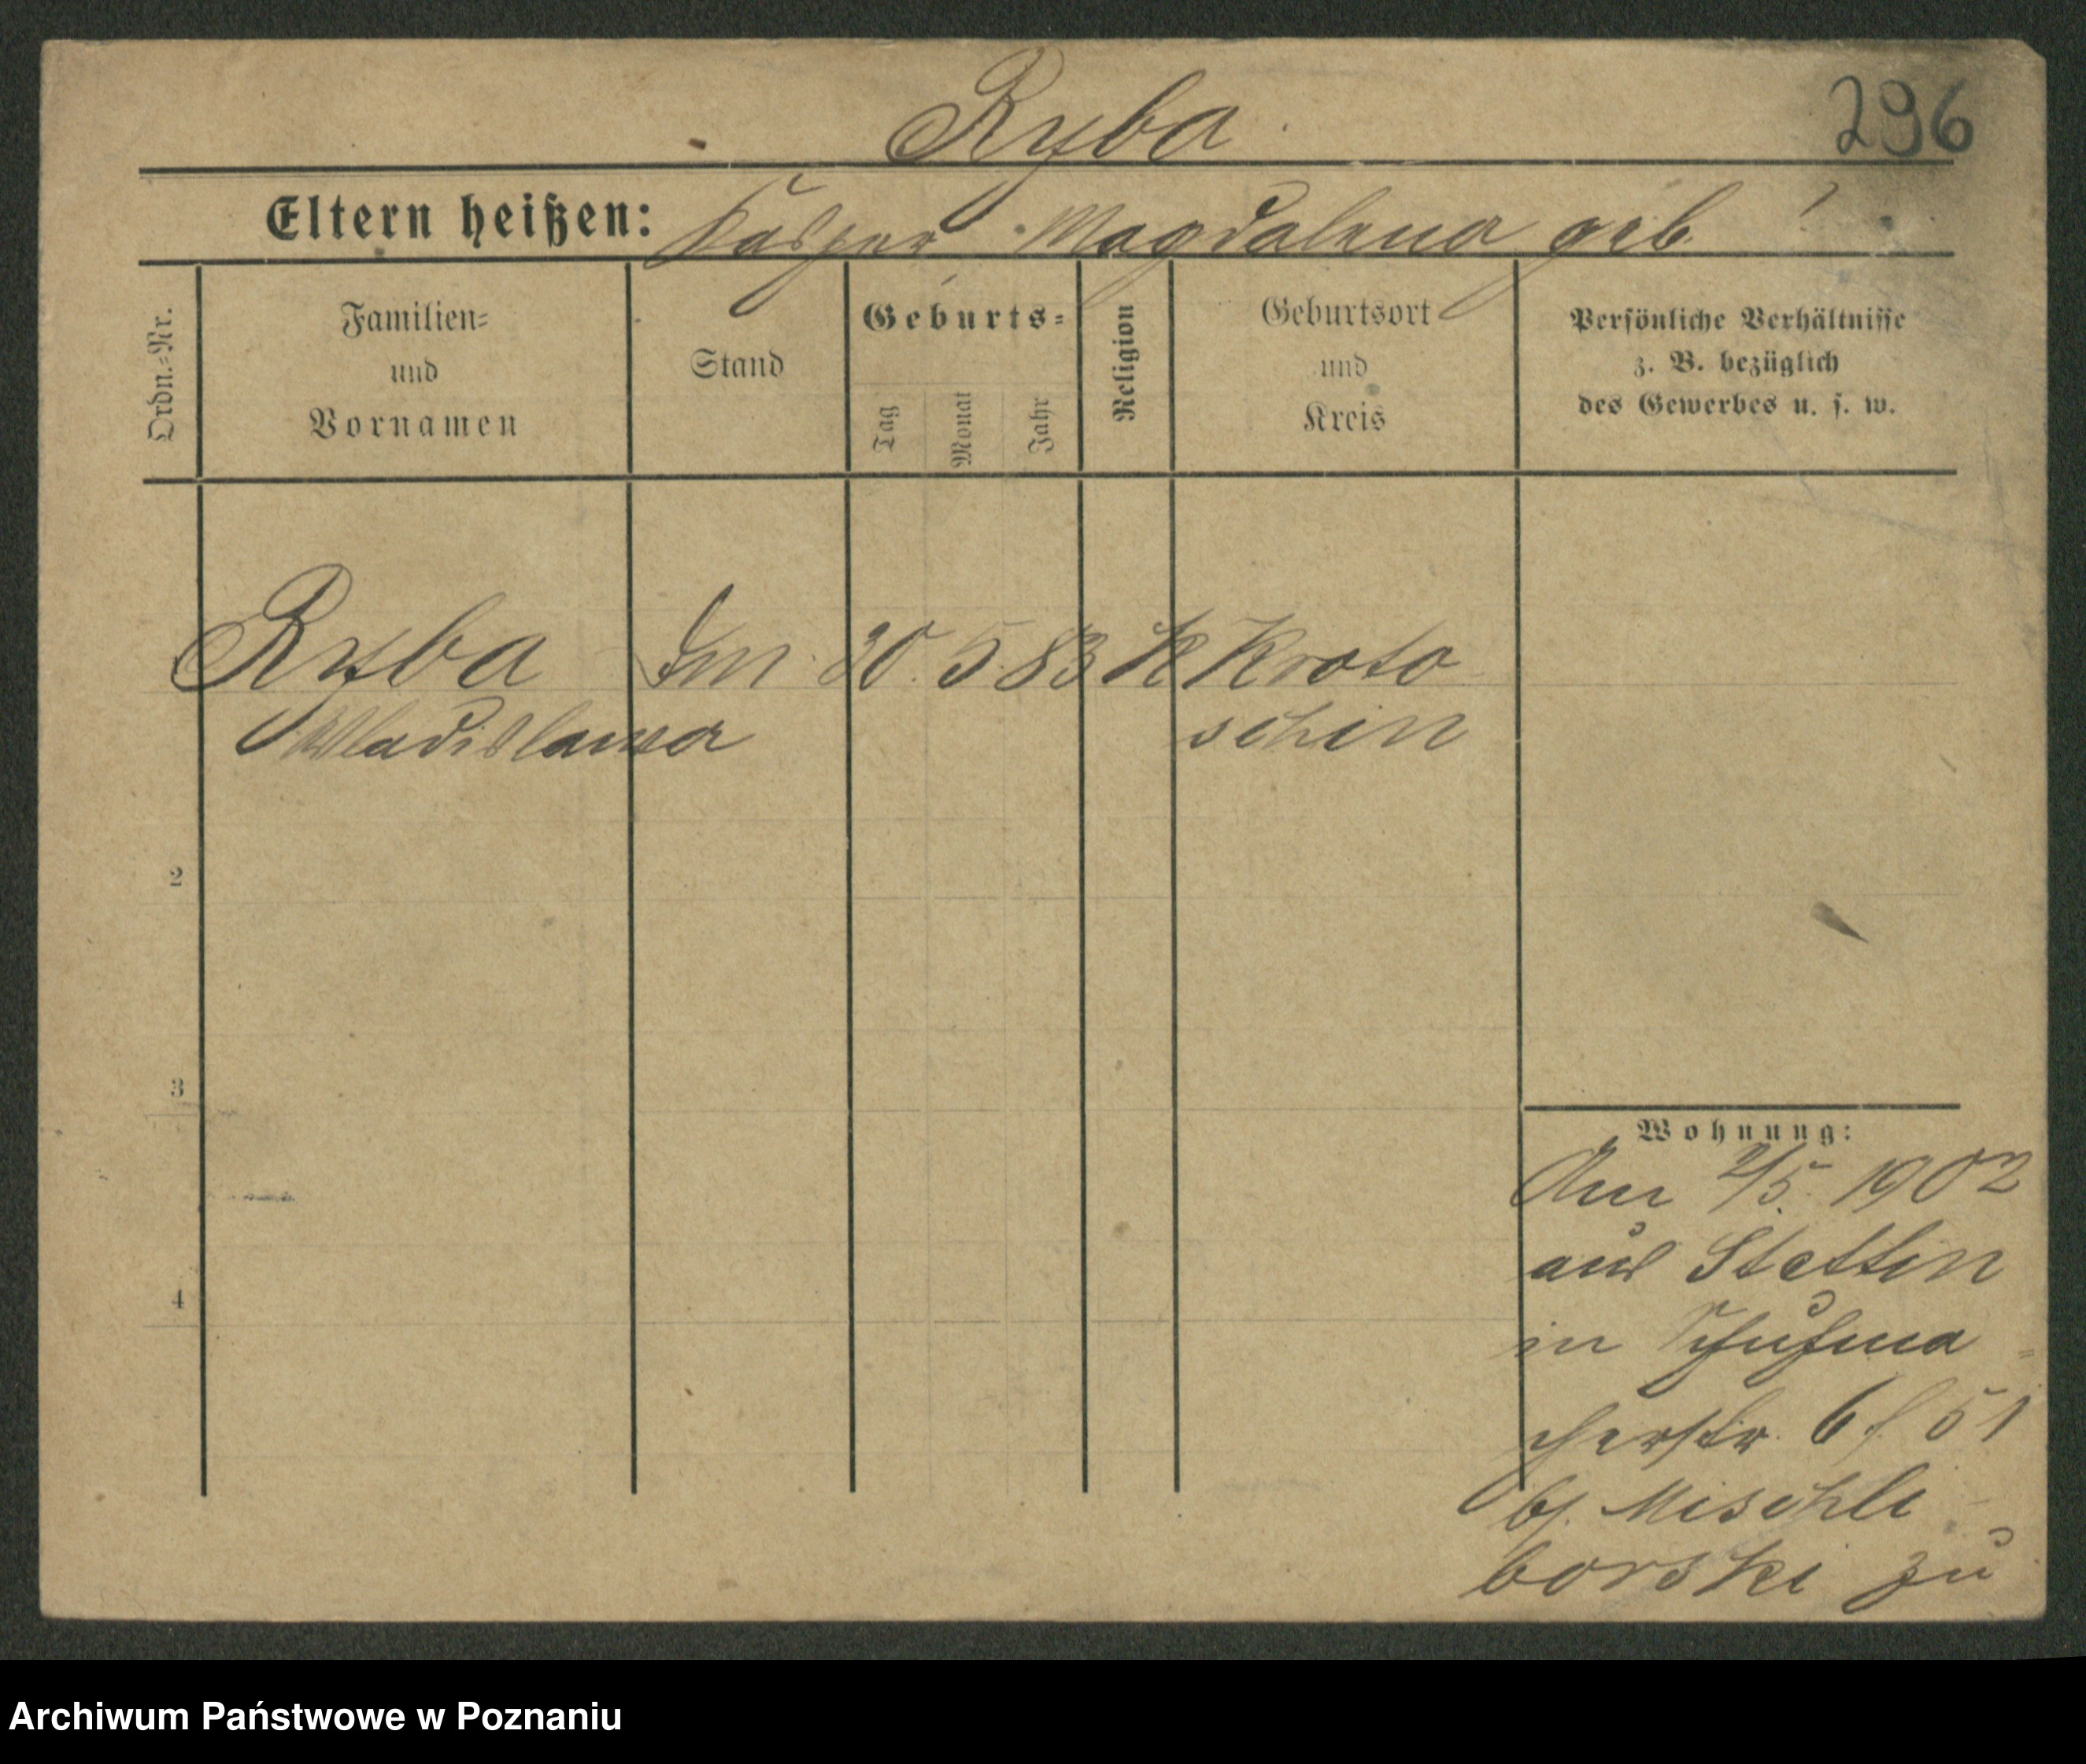 Ryba
296
Eltern heißen: Kasper Magdalena geb. ?
Ordn.=Nr.
Familien=
und
Vornamen
Stand
Geburts=
Tag
Monat
Jahr
Religion
Geburtsort
und
Kreis
Persönliche Verhältnisse
z. B. bezüglich
des Gewerbes u. s. w.
Ryba 30. 5. 83 K Kroto
Wladislawa schin
2
3
4
Wohnung:
Am 2/5. 1902
aus Stettin
in Schuhma=
cherstr. 6 f 51
b/. Mischli-
borski zu
Archiwum Państwowe w Poznaniu